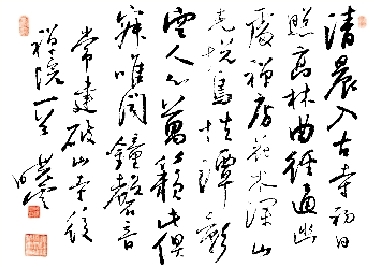 清晨入古寺初日
照高林曲徑通幽
處禪房花木深山
光悦鳥性潭影
空人心萬籟此俱
寂唯聞鐘磬音
常建破山寺後
禪院一首